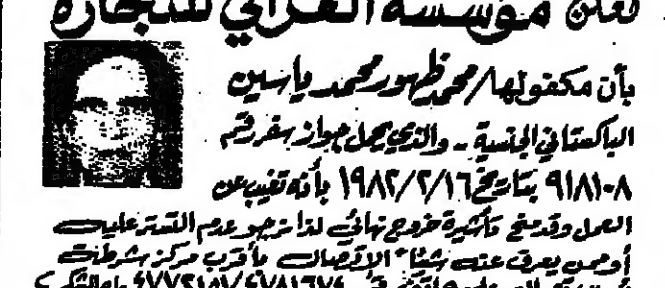 تعلن مؤسسة القرائي للتجارة
بأن مكفولها/ محمد ظهور محمد ياسين
الباكستاني الجنسية - والذي يحمل جواز سفر رقم
٩١٨١٠٨ بتاريخ ١٩٨٢/٢/١٦ بأنه تغيب عن
العمل وقد منح تأشيرة خروج نهائي لذا نرجو عدم التستر عليه
أو ممن يعرف عنه شيئاً الإتصال بأقرب مركز شرطة